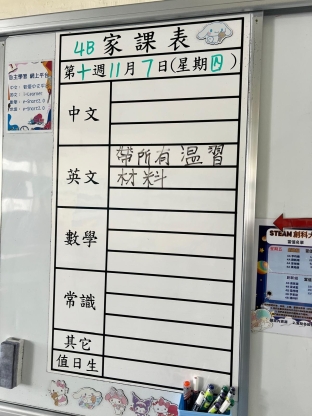 4B 家課表
第十週11月7日(星期四)
中文
英文
帶所有溫習
材料
數學
常識
其它
值日生
自主學習 網上平台
STEAM 創科大